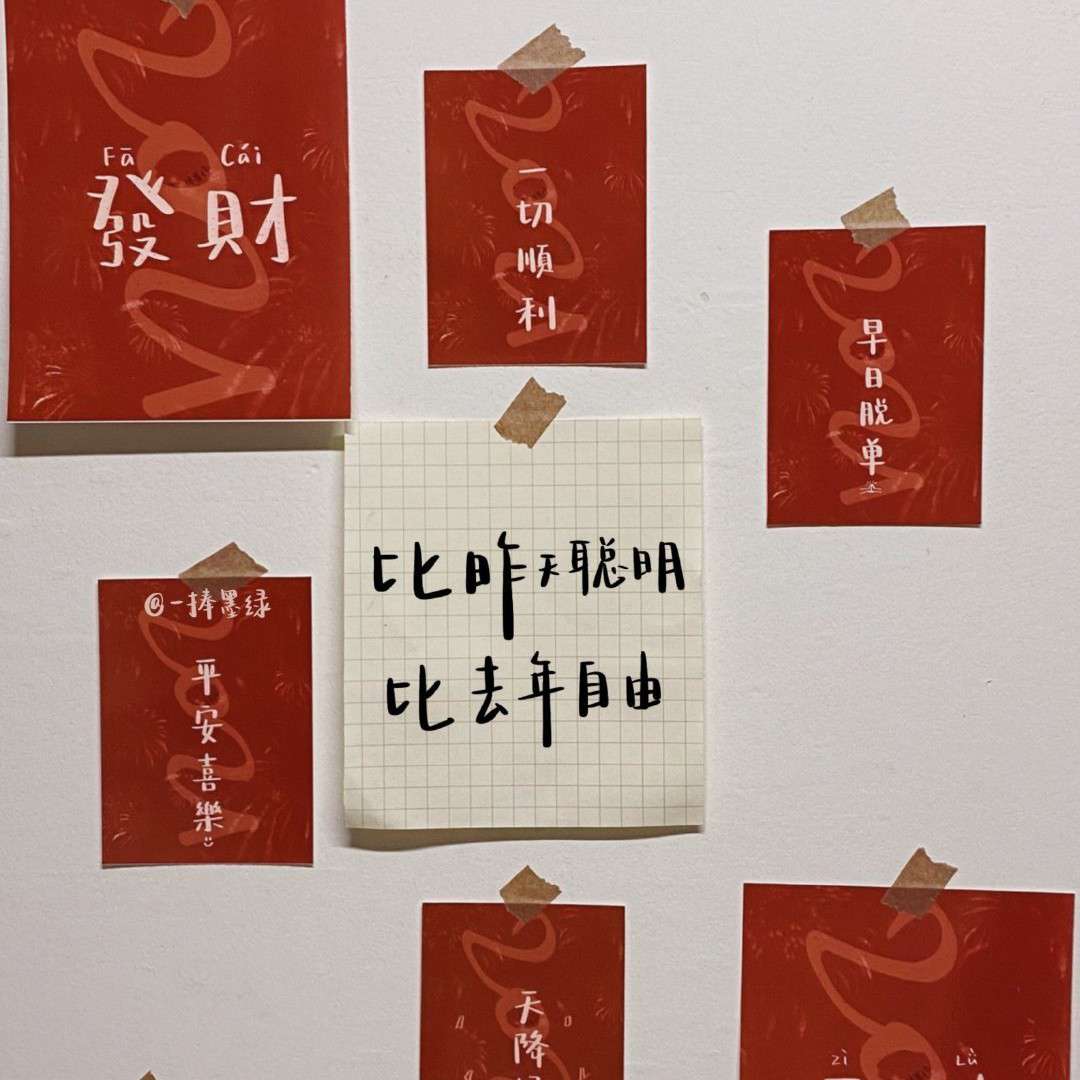 Fā Cái
發財
一切順利
早日脱单
比昨天聪明
比去年自由
@一捧墨绿
平安喜樂
天降
zì Lǜ